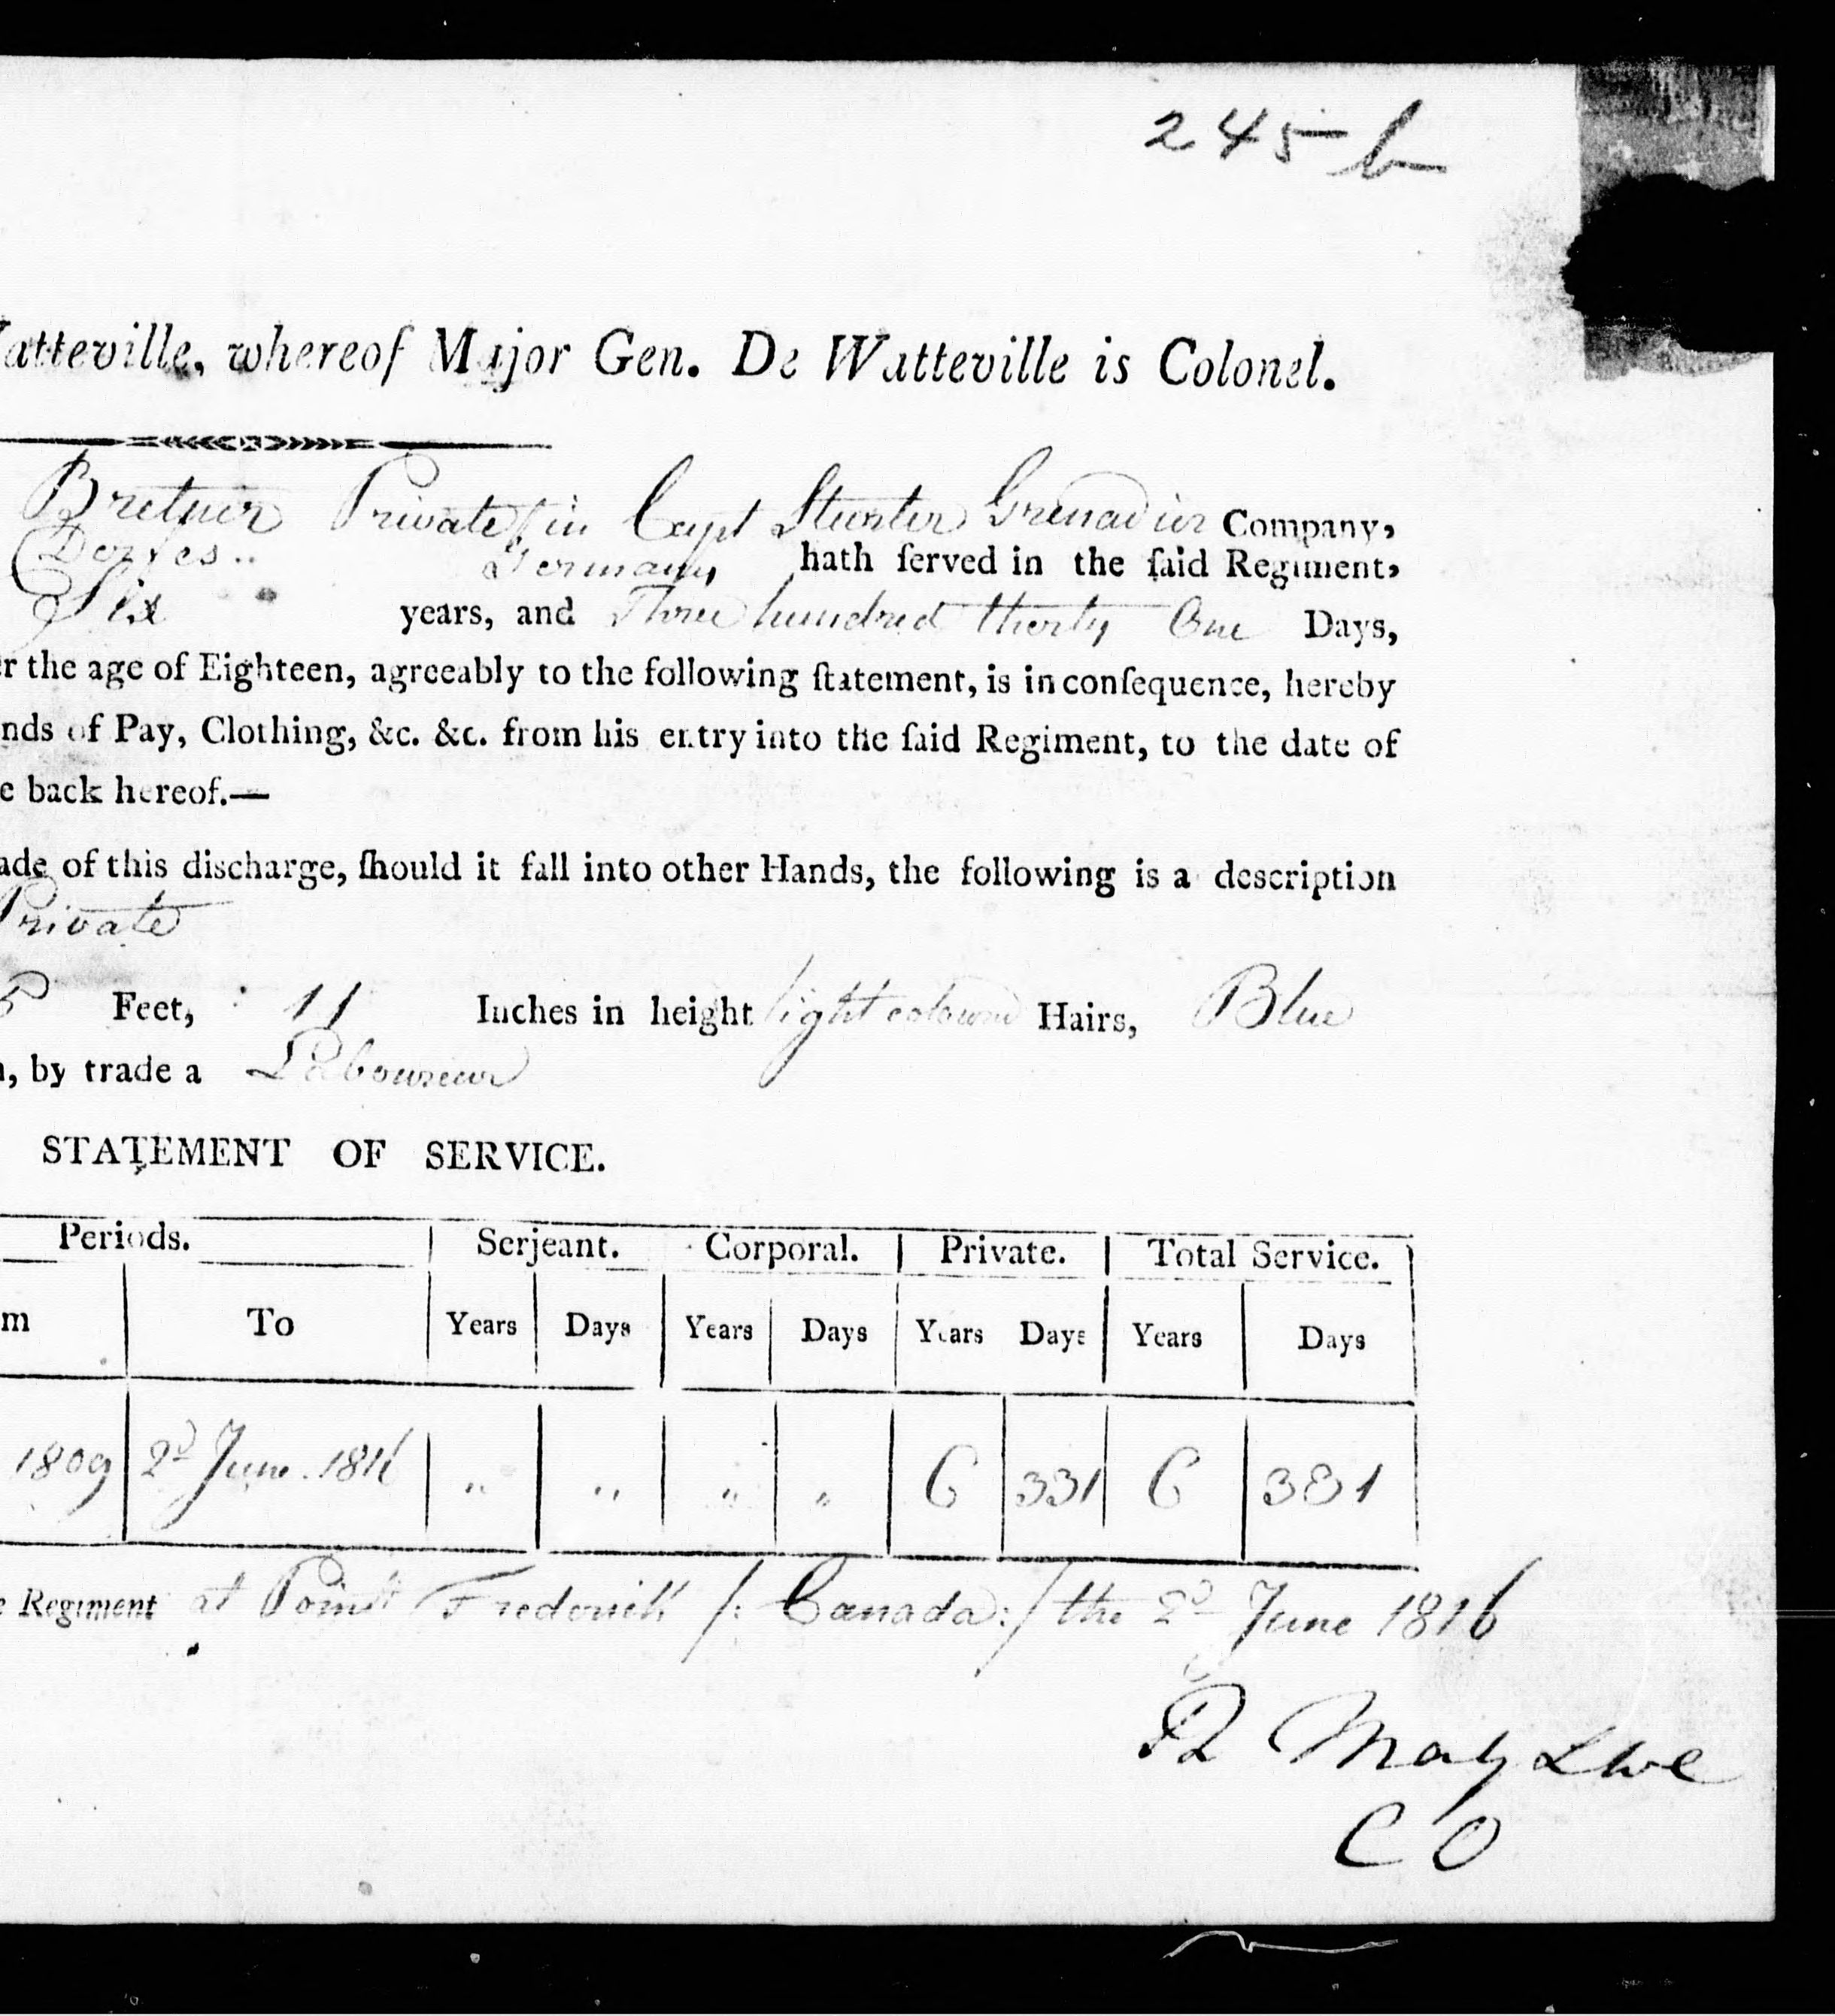 245 b
atteville, whereof Major Gen. De Watteville is Colonel.
Private in Capt Grenadier Company,
Germany hath ſerved in the ſaid Regiment,
Six years, and Three hundred thirty One Days,
r the age of Eighteen, agreeably to the following ſtatement, is in conſequence, hereby
nds of Pay, Clothing, &c. &c. from his entry into the ſaid Regiment, to the date of
e back hereof.—
ade of this discharge, ſhould it fall into other Hands, the following is a description
Private
5 Feet, 11 Inches in height light coloured Hairs, Blue
, by trade a Laboureur
STATEMENT OF SERVICE.
Periods. Serjeant. Corporal. Private. Total Service.
m To Years Days Years Days Years Days Years Days
1809 2d June. 1816 „ „ „ „ 6 331 6 331
e Regiment at Point Frederick /: Canada :/ the 2d June 1816
R May
CO